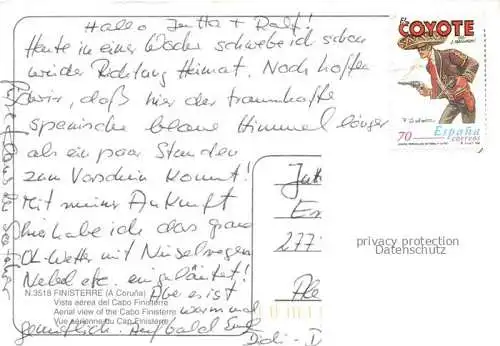 Hallo Jutta + Ralf!
Heute in einer Woche schwebe ich schon
wieder Richtung Heimat. Noch hoffen
wir, daß hier der traumhafte
spanische blaue Himmel länger
als ein paar Stunden
zum Vorschein kommt!
Mit meiner Ankunft
hier habe ich das graue
-Wetter mit Nieselregen
Nebel etc. eingeläutet!
Aber es ist
warm und
gemütlich. Auf bald Eure
Didi -
EL
COYOTE
70
España
correos
Jut
277
privacy protection
Datenschutz
N.3518 FINISTERRE (A Coruña)
Vista aérea del Cabo Finisterre
Aerial view of the Cabo Finisterre
Vue aérienne du Cap Finisterre